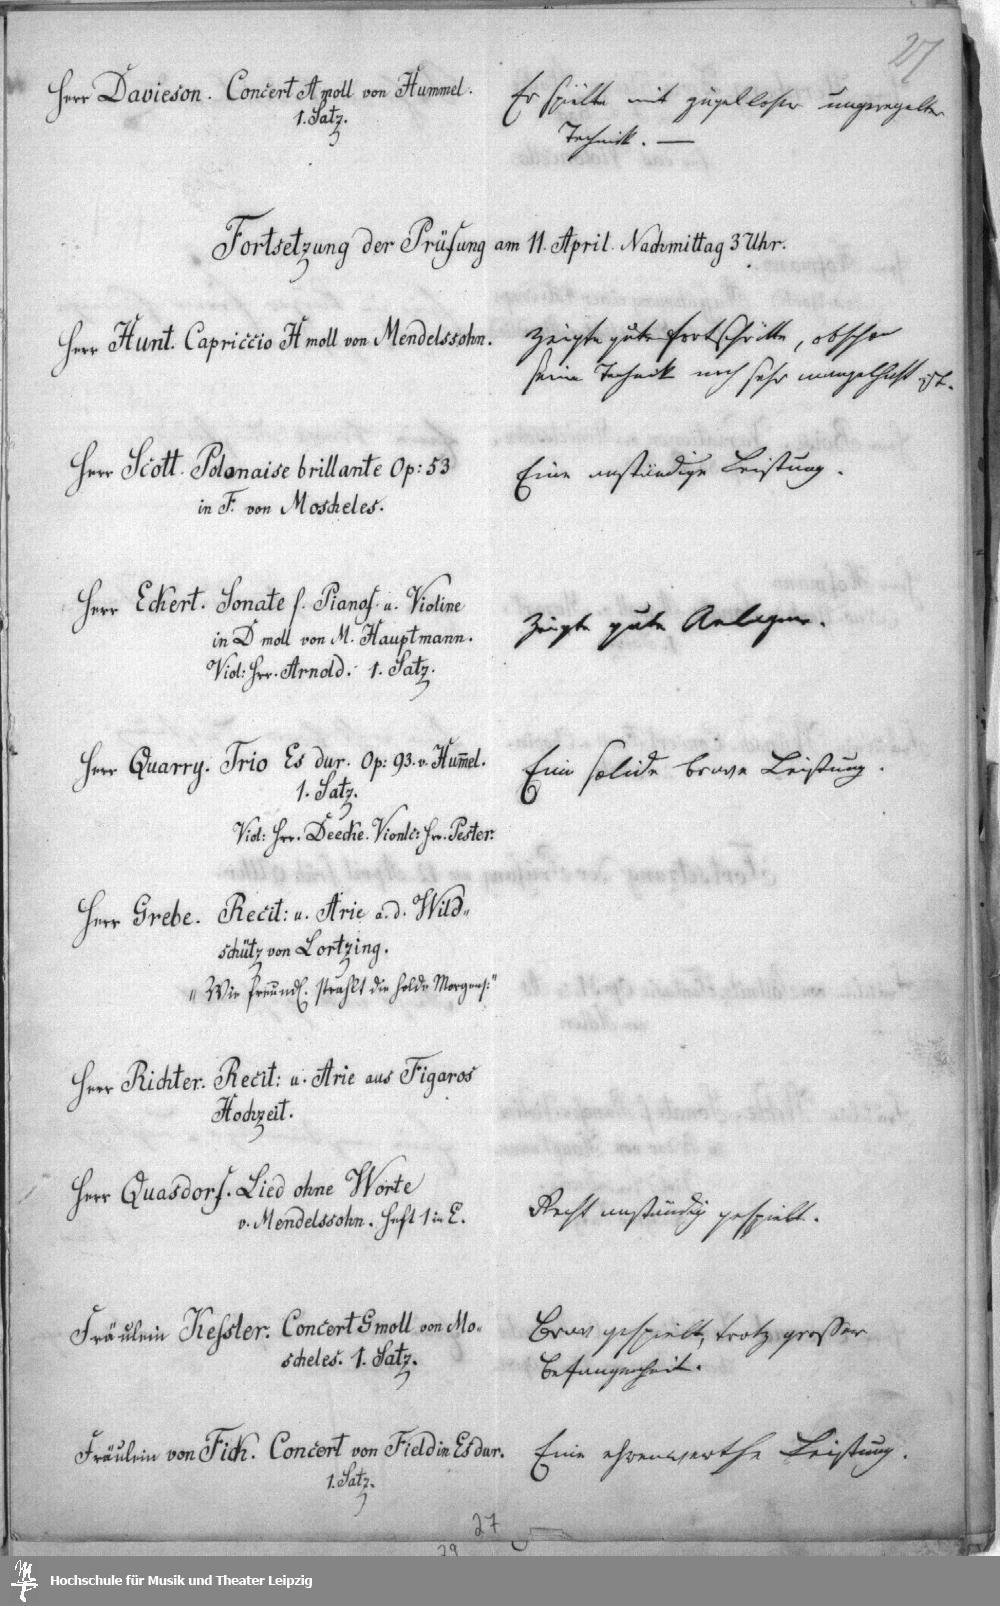 27
Herr Davieson. Concert A moll von Hummel.
1. Satz.
Er spielte mit zügelloser ungeregelter
Technik. —
Fortsetzung der Prüfung am 11. April. Nachmittag 3 Uhr.
Herr Hunt. Capriccio H moll von Mendelssohn.
Zeigte gute Fortschritte, obschon
seine Technik noch sehr mangelhaft ist.
Herr Scott. Polonaise brillante Op: 53
in F. von Moscheles.
Eine anständige Leistung.
Herr Eckert. Sonate f. Pianof. u. Violine
in D moll von M. Hauptmann.
Viol: Hrr. Arnold. 1. Satz.
Zeigte gute Anlagen.
Herr Quarry. Trio Es dur. Op: 93. v. Hum̅el.
1. Satz.
Viol: Hrr. Deecke. Vionlc: Hrr. Pester.
Eine solide brave Leistung.
Herr Grebe. Recit: u. Arie a. d. Wild„
schütz von Lortzing.
„Wie freundl. strahlt die holde Morgens:"
Herr Richter. Recit: u. Arie aus Figaros
Hochzeit.
Herr Quasdorf. Lied ohne Worte
v. Mendelssohn. Heft 1 in E.
Recht anständig gespielt.
Fräulein Kessler. Concert G moll von Mo„
scheles. 1. Satz.
Brav gespielt, trotz grosser
Befangenheit.
Fräulein von Fick. Concert von Field in Es dur.
1. Satz.
Eine ehrenwerthe Leistung.
27
29
Hochschule für Musik und Theater Leipzig